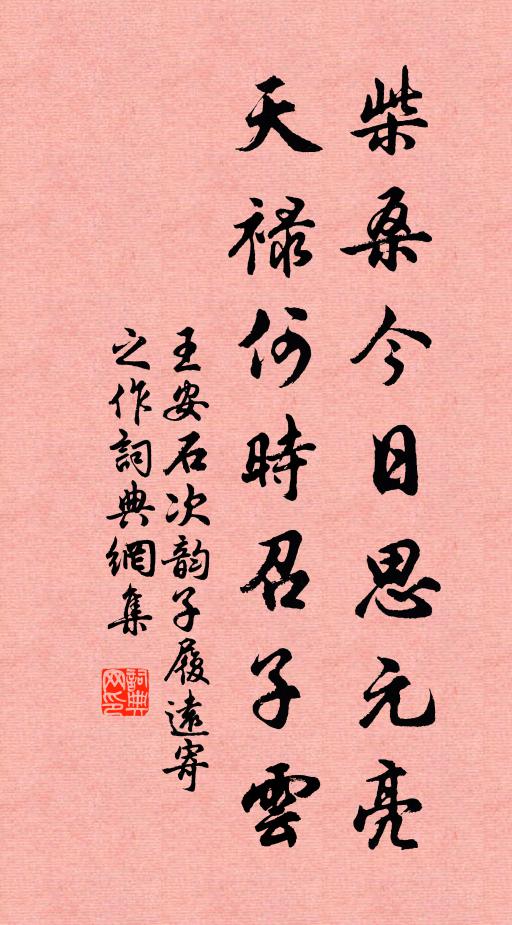 柴桑今日思元亮
天禄何時召子雲
王安石次韵子履遠寄
之作詞典網集
詞典網印